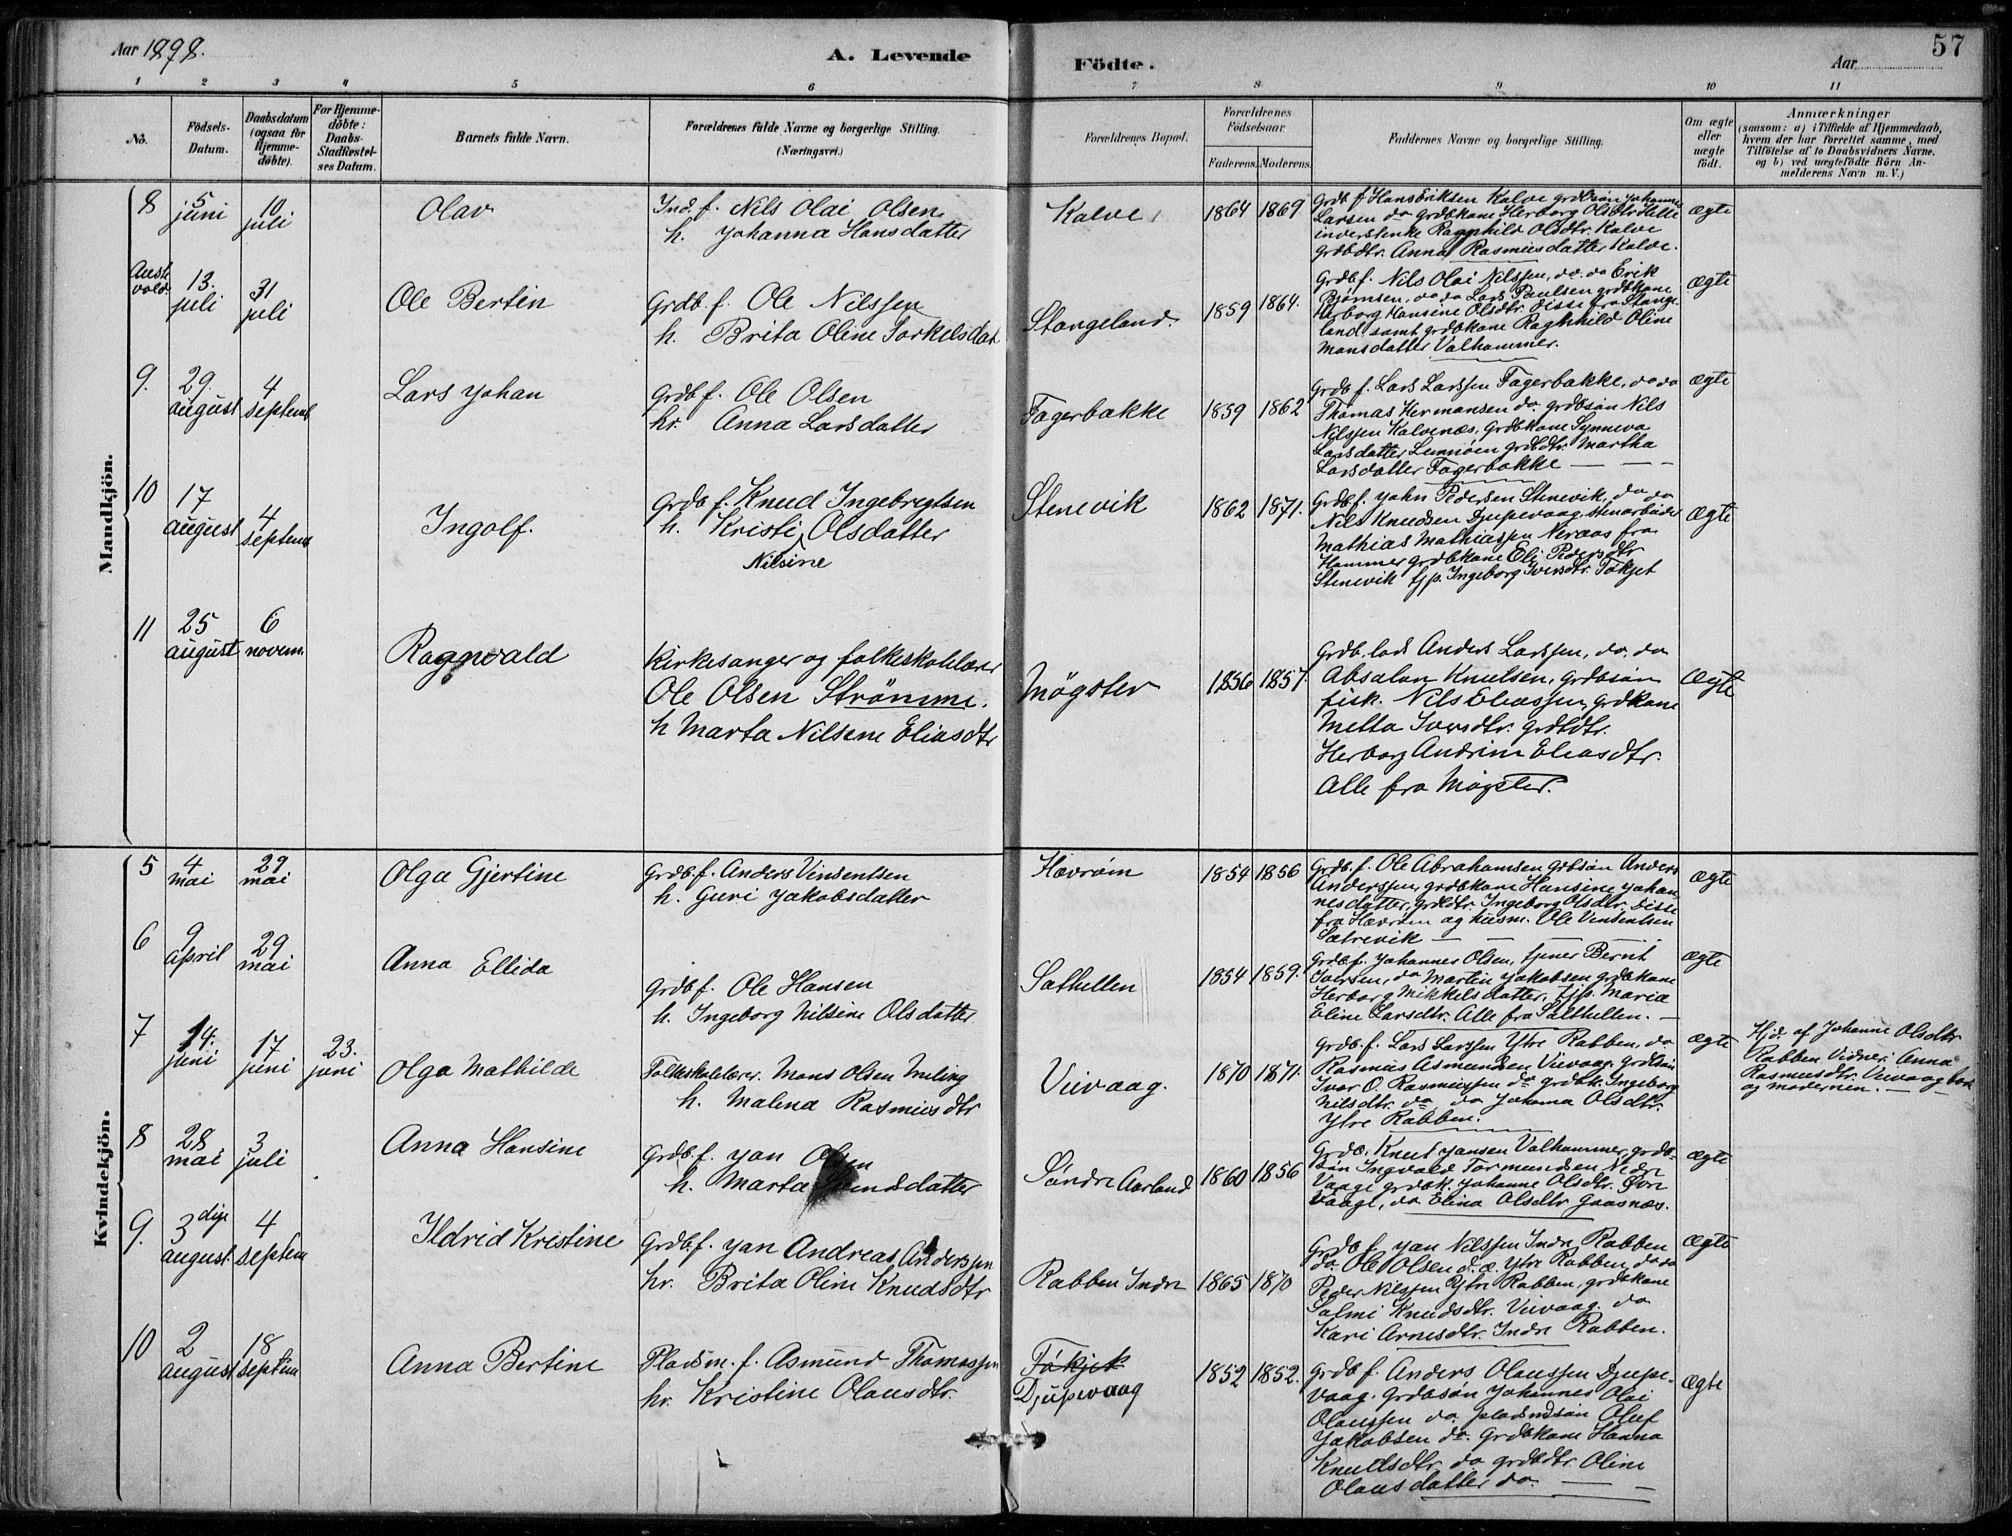 Aar 1898.
A. Levende
Födte.
Aar
57
1 2 3 4 5 6 7 8 9 10 11
No.
Födsels-
Datum.
Daabsdatum
(ogsaa for
Hjemme-
döbte).
For Hjemme-
döbte:
Daabs-
Stadfestel-
ses Datum.
Barnets fulde Navn.
Forældrenes fulde Navne og borgerlige Stilling.
(Næringsvei.)
Forældrenes Bopæl.
Forældrenes
Födselsaar.
Faderens. Moderens.
Faddernes Navne og borgerlige Stilling.
Om ægte
eller
uægte
födt.
Anmærkninger
(saasom: a) i Tilfælde af Hjemmedaab,
hvem der har forrettet samme, med
Tilföielse af to Daabsvidners Navne,
og b) ved uægtefödte Börn An-
melderens Navn m. V.)
Mandkjön.
8
5
juni
10
juli
Olav
Ind. f. Nils Olai Olsen
h. Johanna Hansdatter
Kalve
1864 1869
Grdb f Hans Eriksen Kalve grdbsön Johannes
Larsen do grdbkone Herborg Olsdtr Helle
inderstenke Ragnhild Olsdtr. Kalve
grdbdtr. Anna Rasmusdatter Kalve.
ægte
Aust
vold.
13.
juli
31
juli
Ole Bertin
Grdb f. Ole Nilssen
h. Brita Oline Torkelsdat
Stangeland.
1859 1864.
Grdb f. Nils Olai Nilssen, do. do Erik
Björnsen, do do Lars Paulsen grdbkone
Herborg Hansine Olsdtr. disse fra Stange
land samt grdbkone Raghhild Oline
Monsdatter Valhammer.
ægte
9.
29.
august
4
septemb
Lars Johan
Grdb f. Ole Olsen
hr. Anna Larsdatter
Fagerbakke
1859 1862
Grdb f. Lars Larssen Fagerbakke, do do
Thomas Hermansen do. grdbsön Nils
Nilssen Kalvenæs, Grdbkone Synneva
Larsdatter Lunnöen grdbdtr. Martha
Larsdatter Fagerbakke
ægte
10
17
august
4
septemb
Ingolf.
Grdb f. Knud Ingebregtsen
h. Kristi Olsdatter
Nilsine
Stenevik
1862 1871.
Grdb f. John Pedersen Stenevik, do do
Nils Knudsen Djupevaag, stenarbeider
Mathias Mathiassen Neraas fra
Hammer grdbkone Eli Pedersdtr
Stenevik tjp. Ingeborg Iversdtr. Tökjet
ægte
11
25
august
6
novem.
Ragnvald
Kirkesanger og folkeskolelærer
Ole Olsen Strömme.
h Marta Nilsene Eliasdtr
Møgster
1856 1857.
Grdb. lods Anders Larssen, do. do
Absalon Knutsen, grdbsön
fisk. Nils Eliassen, grdkone
Metta Iversdtr. grdbdtr.
Herborg Andrine Eliasdtr.
Alle fra Møgster.
ægte
Kvindekjön.
5
4
mai
29
mai
Olga Gjertine
Grdb. f. Anders Vinsentsen
h. Guri Jakobsdatter
Hævröin
1854 1856
Grdb. f. Ole Abrahamsen grdbsön Anders
Anderssen, grdbkone Hansine Johan
nesdatter, grdbdtr. Ingeborg Olsdtr. disse
fra Hævröen og husm. Ole Vinsentsen
Sætrevik
ægte
6
9
april
29
mai
Anna Ellida
Grdb f. Ole Hansen
h. Ingeborg Nilsine Olsdatter
Salthellen
1854 1859.
Grdb f. Johannes Olsen, tjener Bernt
Iversen, do Martin Jakobsen, grdbkone
Herborg Mikkelsdatter, tjp. Maria
Eline Larsdtr. Alle fra Salthellen.
ægte
7
14.
juni
17
juni
23.
juni
Olga Mathilde
Folkeskolelærer. Mons Olsen Meling
h. Malena Rasmusdtr
Veivaag.
1870 1871.
Grdb. f. Lars Larssen Ytre Rabben, do
Rasmus Asmundsen Veivaag grdbsön
Ivar O. Rasmussen do grdbk. Ingeborg
Nilsdtr. do do Johanna Olsdtr.
Ytre Rabben.
ægte
Hjd. af Johanne Olsdtr
Rabben Vidner: Anna
Rasmusdtr. Veivaag
og moderen.
8
28
mai
3
juli
Anna Hansine
Grdb. f. Jan Olsen
h. Marta
Söndre Aarland
1860 1856
Grdb. Knut Jansen Valhammer, grdb-
sön Ingvald Tormundsen Nedre
Vaage grdbk. Johanne Olsdtr. Övre
Vaage, do Elina Olsdtr Gaasnæs.
ægte
9.
3 die
august.
4
septem
Ildrid Kristine
Grdb f. Jan Andreas Anderssen
hr. Brita Oline Knudsdtr
Rabben Indre
1865 1870
Grdb f. Jan Nilssen Indre Rabben
do. Ole Olsen d. æ. Ytre Rabben, do do
Peder Nilssen Ytre Rabben, grdbkone
Salmi Knudsdtr. Veivaag. do
Kari Arnesdtr. Indre Rabben.
ægte
10
2
august
18
septem
Anna Bertine
Pladsm. f. Asmund Thomassen
hr. Kristine Olausdtr.
Tökjet
Djupevaag
1852 1852.
Grdb f. Anders Olaussen Djupe-
vaag. Grdbsön Johannes Olai
Olaussen do. pladsmdsön Oluf
Jakobsen do. Grdbkone Hanna
Knutsdtr. do grdbdtr. Oline
Olausdatter do.
ægte